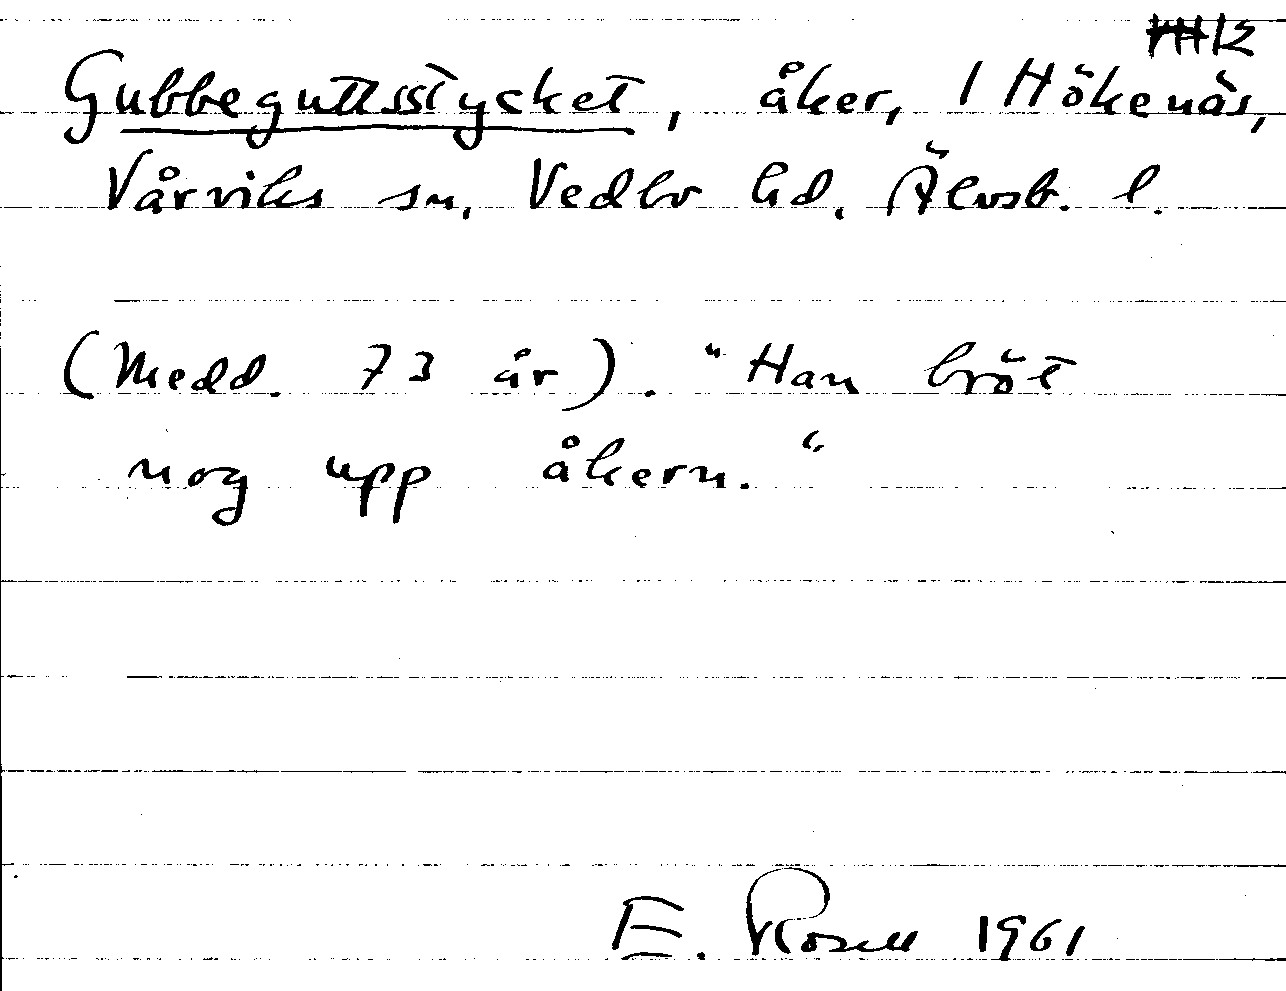 12
Gubbeguttsstycket, åker, 1 Hökenäs,
Vårviks sn, Vedbo hd. Älvsb. l.
(Medd. 73 år). "Han bröt
nog upp åkern."
E. Rosell 1961